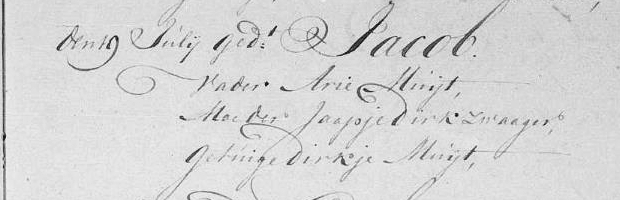 den 19 Julÿ ged:t Jacob.
Vader Arie Muijt,
Moeder Jaapje Dirk Zwaagers,
Getuige Dirkje Muijt,